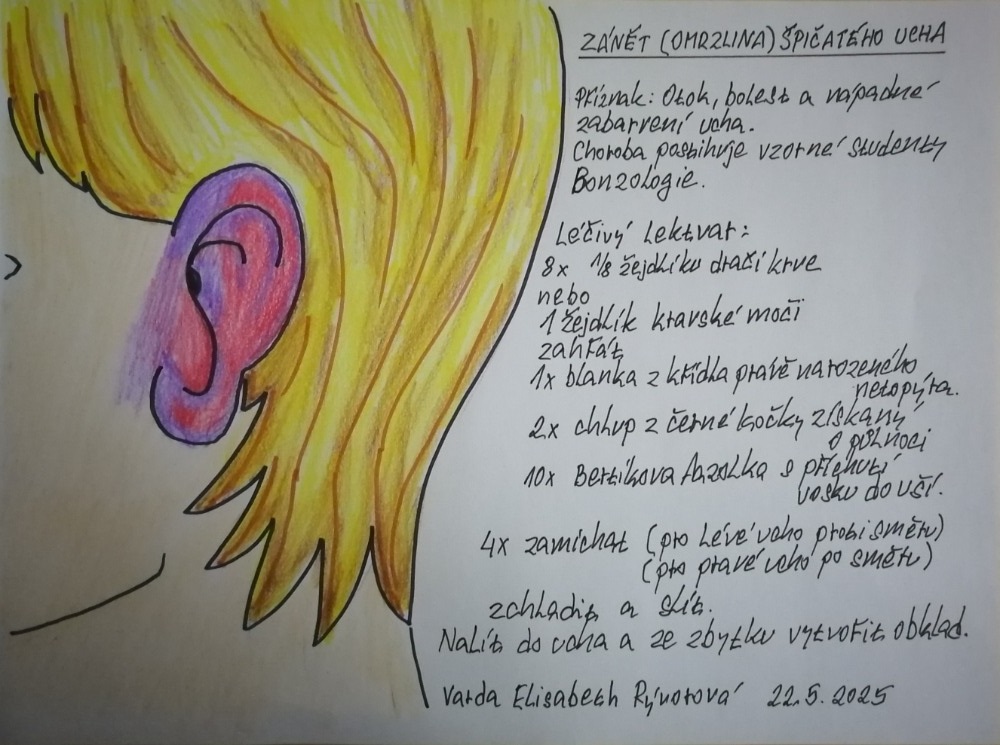 ZÁNĚT (OMRZLINA) ŠPIČATÉHO UCHA
Příznak: Otok, bolest a nápadné
zabarvení ucha.
Choroba postihuje vzorné studenty
Bonzologie.
Léčivý lektvar:
8x 1/8 žejdlíku dračí krve
nebo
1 žejdlík kravské moči
zahřát
1x blanka z křídla právě narozeného
netopýra.
2x chlup z černé kočky získaný
o půlnoci
10x Bertíkova fazolka s příchutí
vosku do uší.
4x zamíchat (pro levé ucho proti směru)
(pro pravé ucho po směru)
zchladit a slít.
Nalít do ucha a ze zbytku vytvořit obklad.
Varda Elisabeth Rývotová 22.5.2025